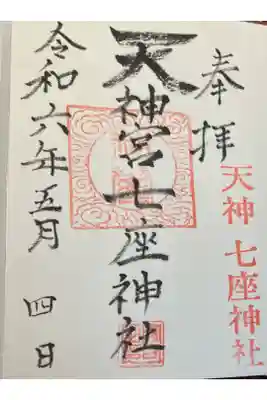 奉拝
天神 七座神社
天神宮七座神社
令和六年五月四日